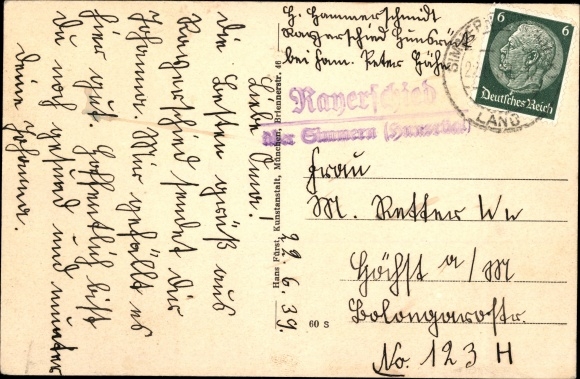 H. Hammerschmidt
Rayerschied Hunsrück
bei Joh. Peter
6 6
Deutsches Reich
SIMMERN
LAND
Rayerschied
über Simmern (Hunsrück)
Frau
M. Retter Ww
Höchst a/M
Bolongarostr.
No. 123 H
Hans Fürst, Kunstanstalt, München, Briennerstr. 46
60 S
22.6.39.
Liebe Oma!
Die besten Grüße aus
Rayerschied sendet Dir
Johanna. Mir gefällt es
hier gut. Hoffentlich bist
Du noch gesund und munter
Deine Johanna.